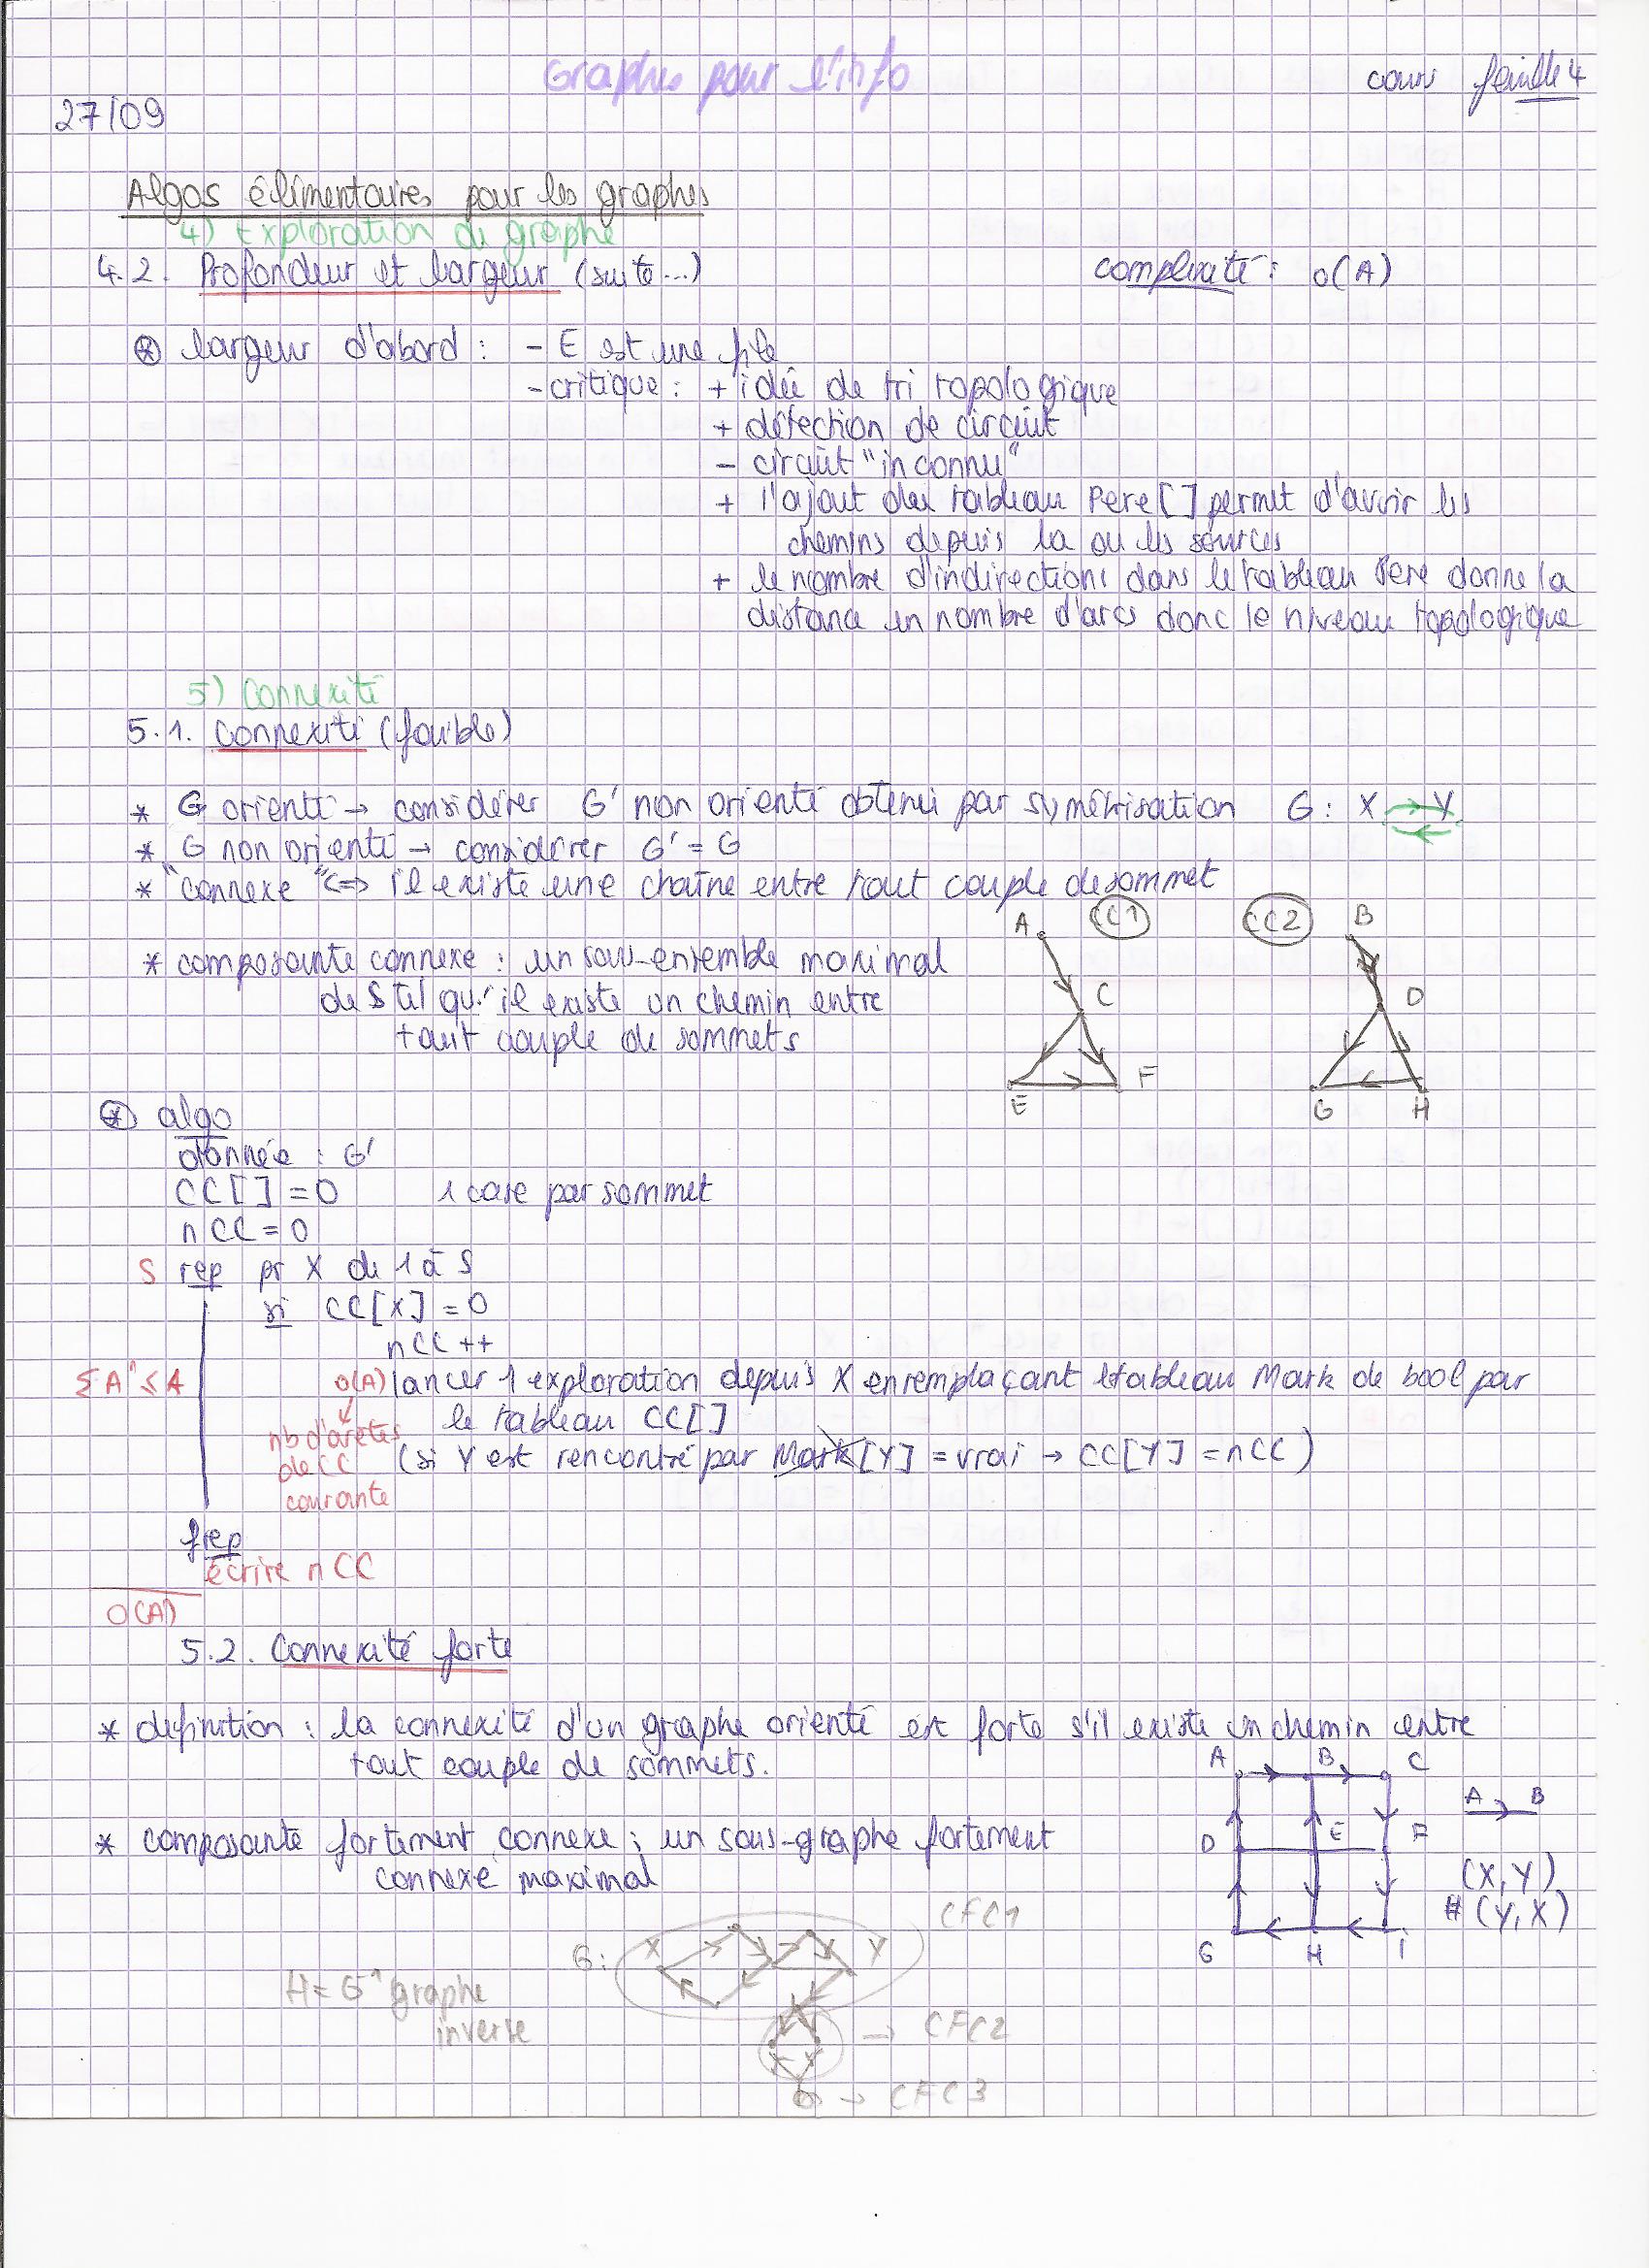 Graphes pour l'info
cours feuille 4
27/09
Algos élémentaires pour les graphes
4) Exploration de graphe
4.2. Profondeur et largeur (suite...) complexité : o(A)
* largeur d'abord : - E est une file
- critique : + idée de tri topologique
+ détection de circuit
- circuit "inconnu"
+ l'ajout du tableau Pere [ ] permet d'avoir les
chemins depuis la ou les sources
+ le nombre d'indirections dans le tableau Pere donne la
distance en nombre d'arcs donc le niveau topologique
5) Connexité
5.1. Connexité (faible)
* G orienté → considérer G' non orienté obtenu par symétrisation G : X Y
* G non orienté → considérer G' = G
* "connexe" <=> il existe une chaîne entre tout couple de sommet
A CC1 CC2 B
* composante connexe : un sous-ensemble maximal
de S tel qu'il existe un chemin entre
tout couple de sommets
C D
E F G H
* algo
donnée : G'
CC[ ] = 0 1 case par sommet
nCC = 0
S rep pr X de 1 à S
si CC[X] = 0
nCC ++
Σ A" ≤ A o(A) lancer 1 exploration depuis X en remplaçant le tableau Mark de bool par
le tableau CC[ ]
nb d'arêtes
de CC
courante
(si Y est rencontré par Mark[Y] = vrai → CC[Y] = nCC)
frep
écrire nCC
O(A)
5.2. Connexité forte
* definition : la connexité d'un graphe orienté est forte s'il existe un chemin entre
tout couple de sommets.
A B C
A B
* composante fortement connexe ; un sous-graphe fortement
connexe maximal
D E F
(X, Y)
≠ (Y, X)
G H I
CFC1
G : X Y
H = G⁻¹ graphe
inverse
→ CFC2
→ CFC3